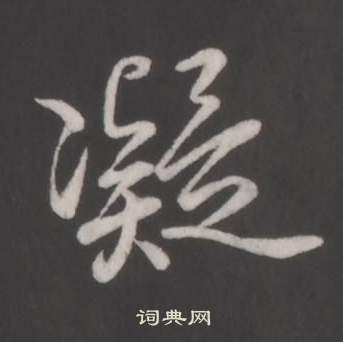 凝
词典网